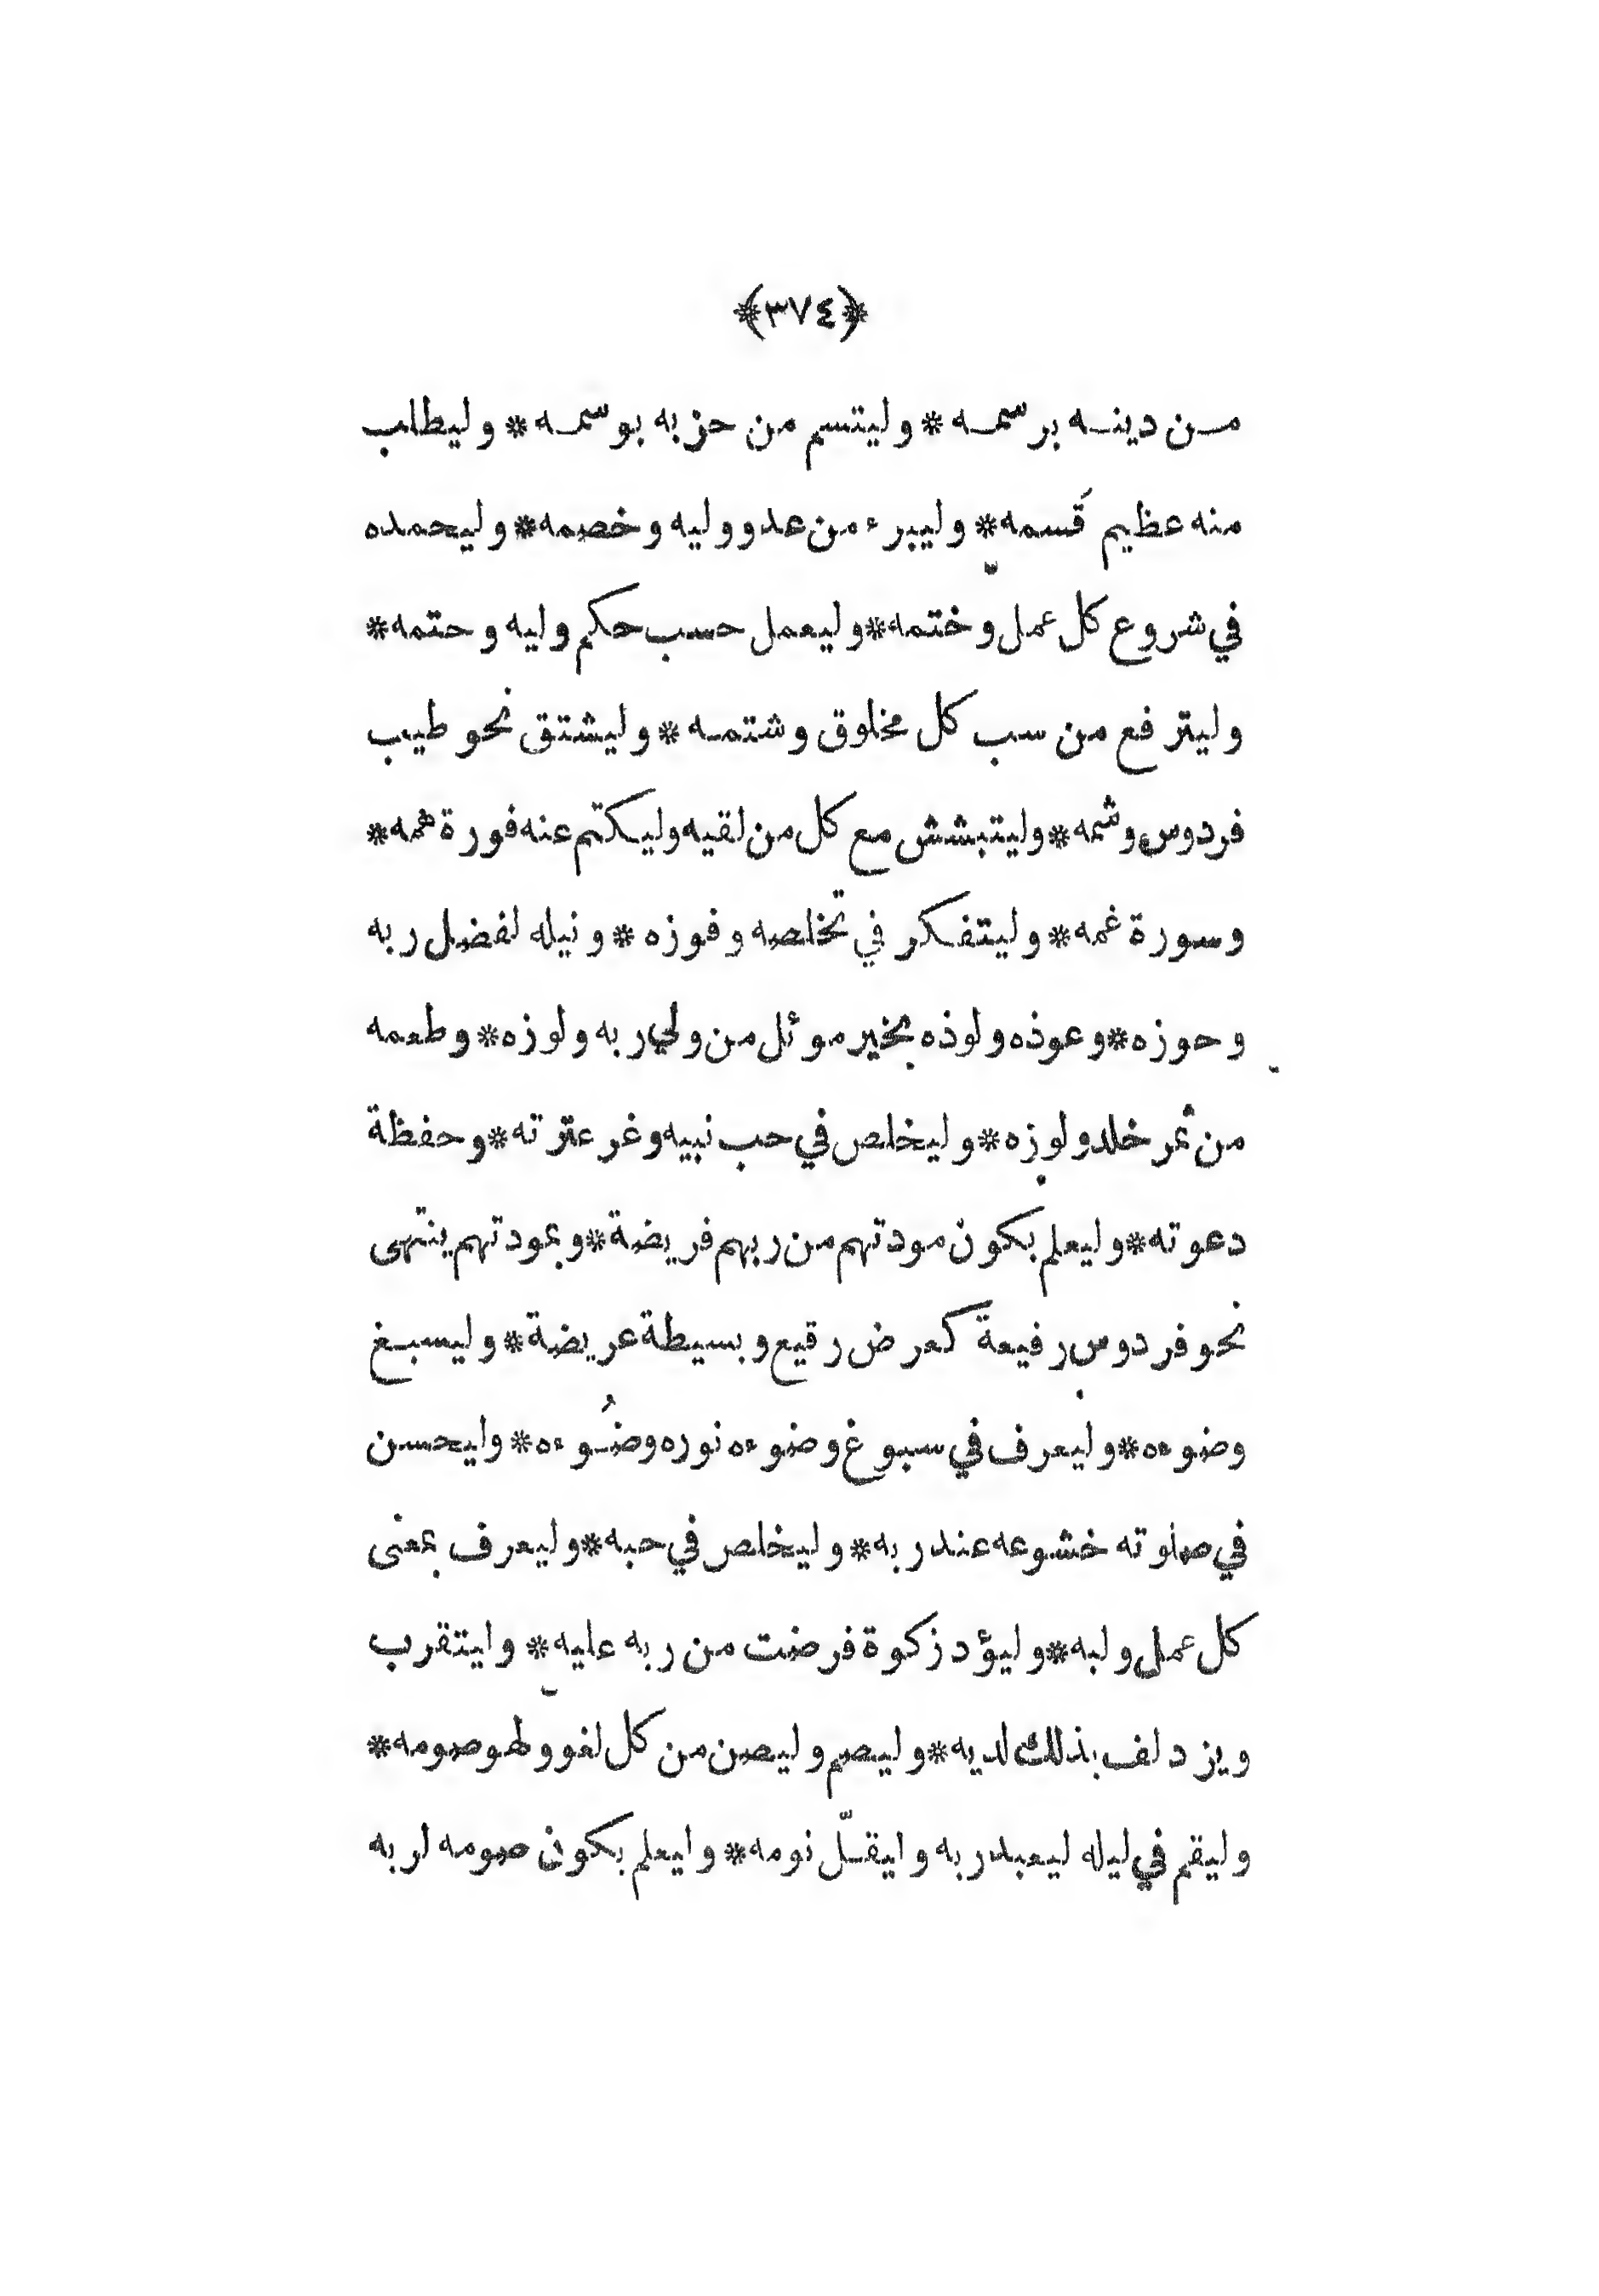 ﴿٣٧٤﴾
من دينه برسمه * وليتسم من حزبه بوسمه * وليطلب
منه عظيم قَسمه * وليبرء من عدو وليه وخصمه * وليحمده
في شروع كل عمل وختمه * وليعمل حسب حكم وليه وحتمه *
وليترفع من سب كل مخلوق وشتمه * وليشتق نحو طيب
فردوس وشمه * وليتبشش مع كل من لقيه وليكتم عنه فورة همه *
وسورة غمه * وليتفكر في تخلصه وفوزه * ونيله لفضل ربه
وحوزه * وعوذه ولوذه بخير موئل من ولي ربه ولوزه * وطعمه
من ثمر خلد ولوزه * وليخلص في حب نبيه وغر عترته * وحفظة
دعوته * وليعلم بكون مودتهم من ربهم فريضة * وبمودتهم ينتهى
نحو فردوس رفيعة كعرض رقيع وبسيطة عريضة * وليسبغ
وضوءه * وليعرف في سبوغ وضوءه نوره وضُوءه * وليحسن
في صلوته خشوعه عند ربه * وليخلص في حبه * وليعرف بمعنى
كل عمل ولبه * وليؤد زكوة فرضت من ربه عليه * وليتقرب
ويزدلف بذلك لديه * وليصم وليصن من كل لغو ولهو صومه *
وليقم في ليله ليعبد ربه وليقلّ نومه * وليعلم بكون صومه لربه